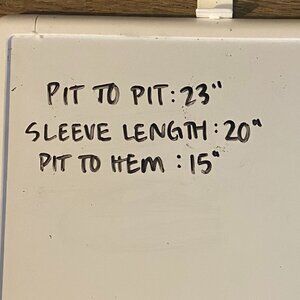 PIT TO PIT: 23"
SLEEVE LENGTH: 20"
PIT TO HEM : 15"